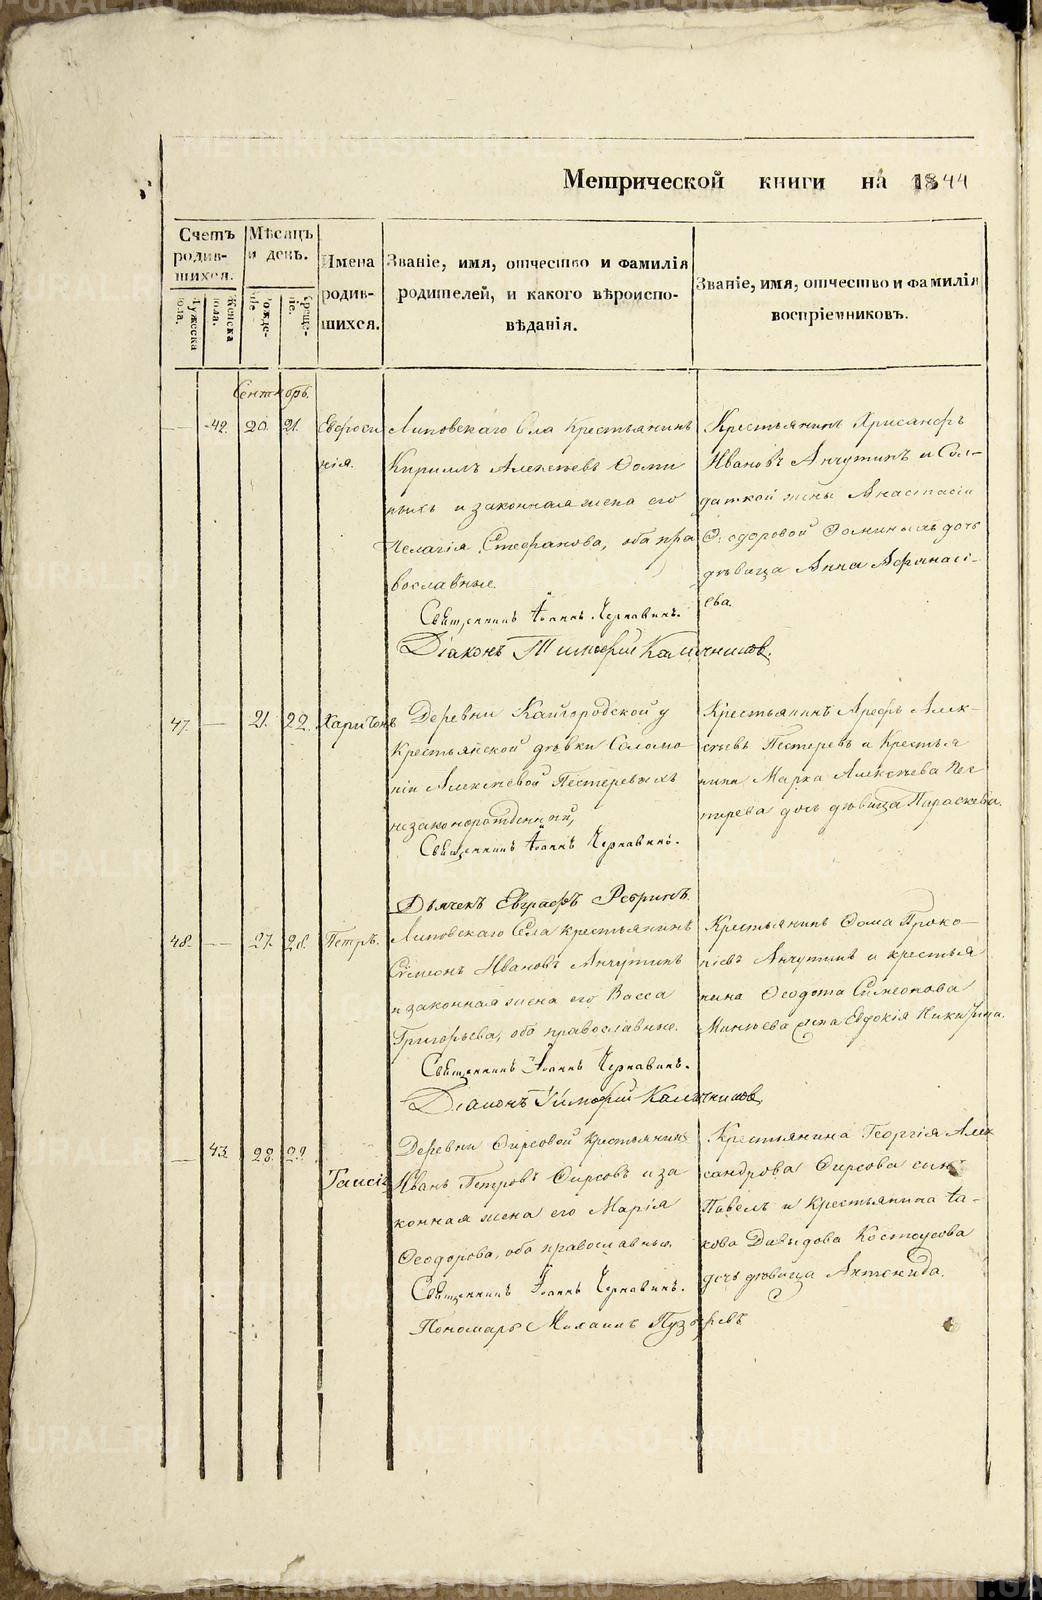 METRIKI.GASO-URAL.RU
Метрической книги на 1844
Счетъ родив- шихся.
Мужеска пола.
Женска пола.
Мѣсяцъ и день.
рожде- ніе
креще- ніе.
Имена родив- шихся.
Званіе, имя, отчество и фамилія
родителей, и какого вѣроиспо-
вѣданія.
Званіе, имя, отчество и фамилія
воспріемниковъ.
Сентябрь.
— 42. 20. 21. Евфроси
нія.
Липовскаго Села Крестьянинъ
Кириллъ Алексѣевъ Ѳоми
ныхъ и законная жена его
Пелагія Стефанова, оба пра
вославные.
Священникъ Іоаннъ Чернавинъ.
Діаконъ Тимофей Калачниковъ.
Крестьянинъ Хрисанфъ
Ивановъ Анчутинъ и Сол-
даткой жены Анастасіи
Ѳеодоровой Ѳоминыхъ дочь
дѣвица Анна Афанасі-
ева.
47. — 21. 22. Харитонъ
Деревни Кайгородской у
Крестьянской дѣвки Соломо
ніи Алексѣевой Пестеревыхъ
незаконорожденный,
Священникъ Іоаннъ Чернавинъ.
Дьячекъ Евграфъ Ребринъ.
Крестьянинъ Арефъ Алек-
сѣевъ Пестеревъ и Крестья
нина Марка Алексѣева Пес
терева дочь дѣвица Параскева.
48. — 27. 28. Петръ.
Липовскаго Села крестьянинъ
Симеонъ Ивановъ Анчутинъ
и законная жена его Васса
Григорьева, оба православные.
Священникъ Іоаннъ Чернавинъ.
Діаконъ Тимофей Калачниковъ
Крестьянинъ Ѳома Проко-
піевъ Анчутинъ и крестья
нина Ѳеодота Симеонова
Минѣева жена Евдокія Никифорова.
— 43. 28. 29.
Таисія
Деревни Ѳирсовой Крестьянинъ
Иванъ Петровъ Ѳирсовъ и за
конная жена его Марія
Ѳеодорова, оба православные.
Священникъ Іоаннъ Чернавинъ.
Пономарь Михаилъ Пузыревъ
Крестьянина Георгія Алек
сандрова Ѳирсова сынъ
Павелъ и Крестьянина Іа-
кова Давыдова Костоусова
дочь дѣвица